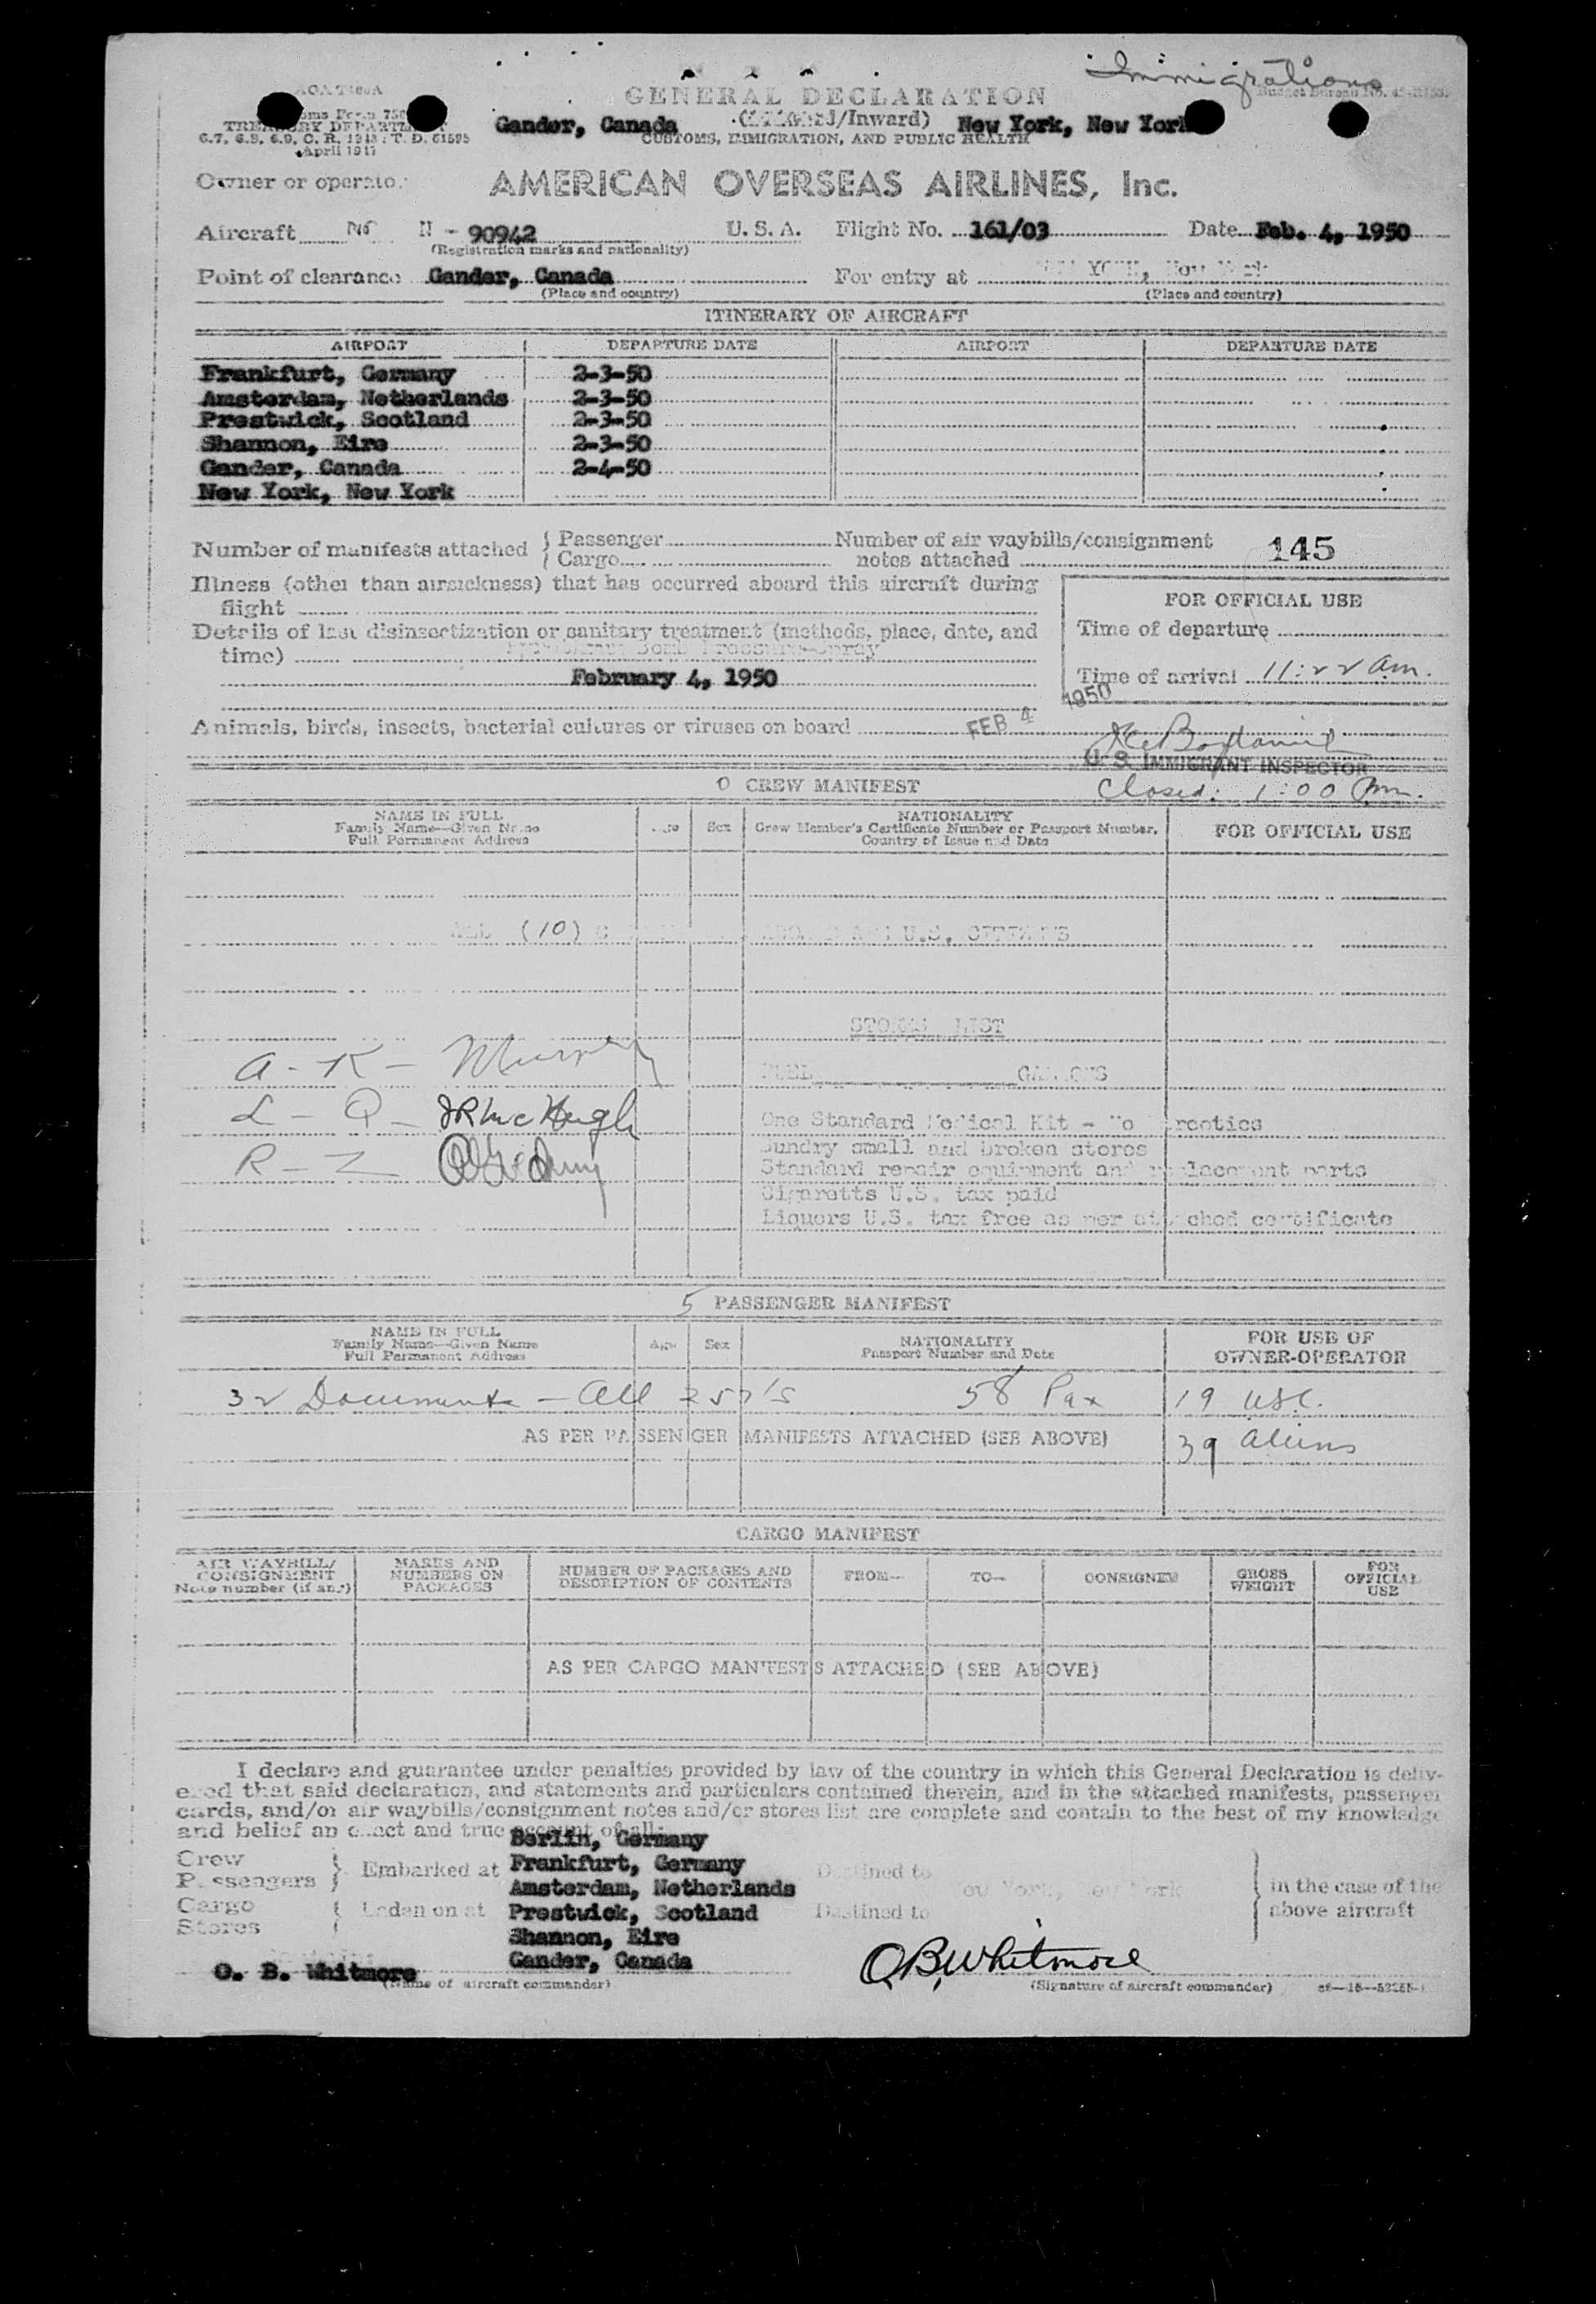 Immigrations
GENERAL DECLARATION
TREASURY DEPARTMENT
April 1947
Gander, Canada /Inward) New York, New York
CUSTOMS, IMMIGRATION, AND PUBLIC HEALTH
Owner or operator
AMERICAN OVERSEAS AIRLINES, Inc.
Aircraft N - 90942 U. S. A. Flight No. 161/03 Date Feb. 4, 1950
(Registration marks and nationality)
Point of clearance Gander, Canada For entry at YORK, New York
(Place and country) (Place and country)
ITINERARY OF AIRCRAFT
AIRPORT DEPARTURE DATE AIRPORT DEPARTURE DATE
Frankfurt, Germany 2-3-50
Amsterdam, Netherlands 2-3-50
Prestwick, Scotland 2-3-50
Shannon, Eire 2-3-50
Gander, Canada 2-4-50
New York, New York
Number of manifests attached { Passenger Number of air waybills/consignment
{ Cargo notes attached 145
Illness (other than airsickness) that has occurred aboard this aircraft during
flight
FOR OFFICIAL USE
Details of last disinsectization or sanitary treatment (methods, place, date, and
time) Bomb Pressure-Spray
Time of departure
February 4, 1950
Time of arrival 11:22 am.
Animals, birds, insects, bacterial cultures or viruses on board
FEB 4 1950
U. S. IMMIGRANT INSPECTOR
0 CREW MANIFEST
Closed: 1:00 Pm.
NAME IN FULL
Family Name—Given Name
Full Permanent Address
Sex
NATIONALITY
Crew Member's Certificate Number or Passport Number,
Country of Issue and Date
FOR OFFICIAL USE
ALL (10) U.S. CITIZENS
STORES LIST
A - K - Murphy
FUEL GALLONS
L - Q - JR McHugh
One Standard Medical Kit - No rcotics
Sundry small and broken stores
R - Z -
Standard repair equipment and replacement parts
Cigaretts U.S. tax paid
Liquors U.S. tax free as per attached certificate
5 PASSENGER MANIFEST
NAME IN FULL
Family Name—Given Name
Full Permanent Address
Age Sex
NATIONALITY
Passport Number and Date
FOR USE OF
OWNER-OPERATOR
32 Documents - All 257's 58 Pax 19 USC.
AS PER PASSENGER MANIFESTS ATTACHED (SEE ABOVE) 39 Aliens
CARGO MANIFEST
AIR WAYBILL/
CONSIGNMENT
Note number (if any)
MARKS AND
NUMBERS ON
PACKAGES
NUMBER OF PACKAGES AND
DESCRIPTION OF CONTENTS
FROM—
TO—
CONSIGNEE
GROSS
WEIGHT
FOR
OFFICIAL
USE
AS PER CARGO MANIFESTS ATTACHED (SEE ABOVE)
I declare and guarantee under penalties provided by law of the country in which this General Declaration is deliv-
ered that said declaration, and statements and particulars contained therein, and in the attached manifests, passenger
cards, and/or air waybills/consignment notes and/or stores list are complete and contain to the best of my knowledge
and belief an exact and true account of all:
Berlin, Germany
Crew
Passengers } Embarked at Frankfurt, Germany Destined to
Amsterdam, Netherlands New York, New York } in the case of the
Cargo
Stores { Laden on at Prestwick, Scotland Destined to above aircraft
Shannon, Eire
Gander, Canada
O. B. Whitmore
(Name of aircraft commander)
O.B. Whitmore
(Signature of aircraft commander)